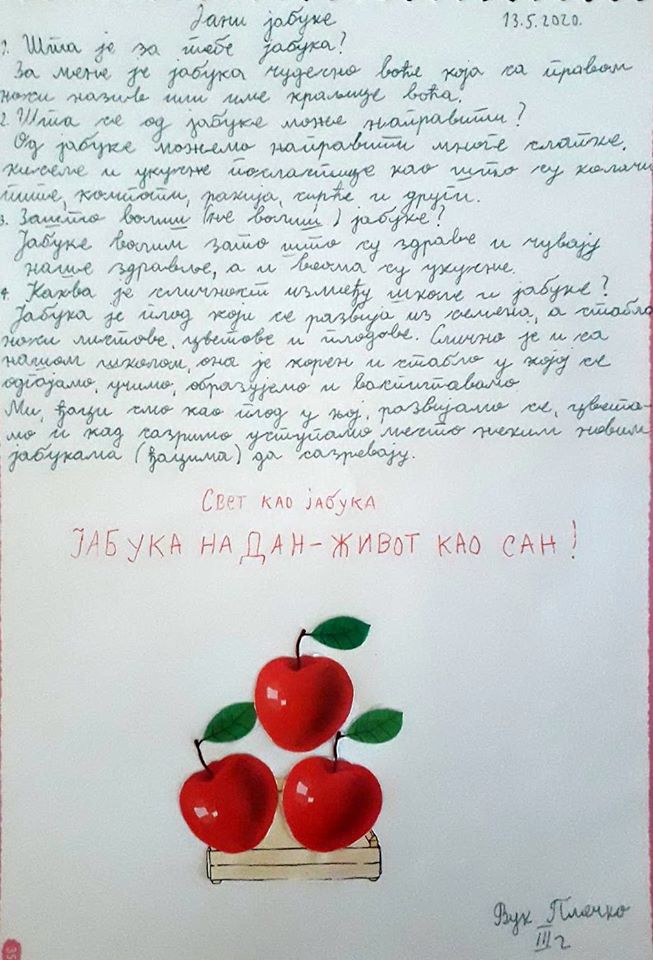 Дани јабуке 13.5.2020.
1. Шта је за тебе јабука?
За мене је јабука чудесно воће која са правом
носи назив или име краљице воћа.
2. Шта се од јабуке може направити?
Од јабуке можемо направити многе слатке,
киселе и укусне посластице као што су колачи
пите, компоти, ракија, сирће и други.
3. Зашто волиш (не волиш) јабуке?
Јабуке волим зато што су здраве и чувају
наше здравље, а и веома су укусне.
4. Каква је сличност између школе и јабуке?
Јабука је плод који се развија из семена, а стабло
носи листове, цветове и плодове. Слично је и са
нашом школом, она је корен и стабло у којој се
одгајамо, учимо, образујемо и васпитавамо
Ми, ђаци смо као плод у њој, развијамо се, цвета-
мо и кад сазримо уступамо место неким новим
јабукама (ђацима) да сазревају.
Свет као јабука
ЈАБУКА НА ДАН-ЖИВОТ КАО САН!
Вук Плечко
III2
35